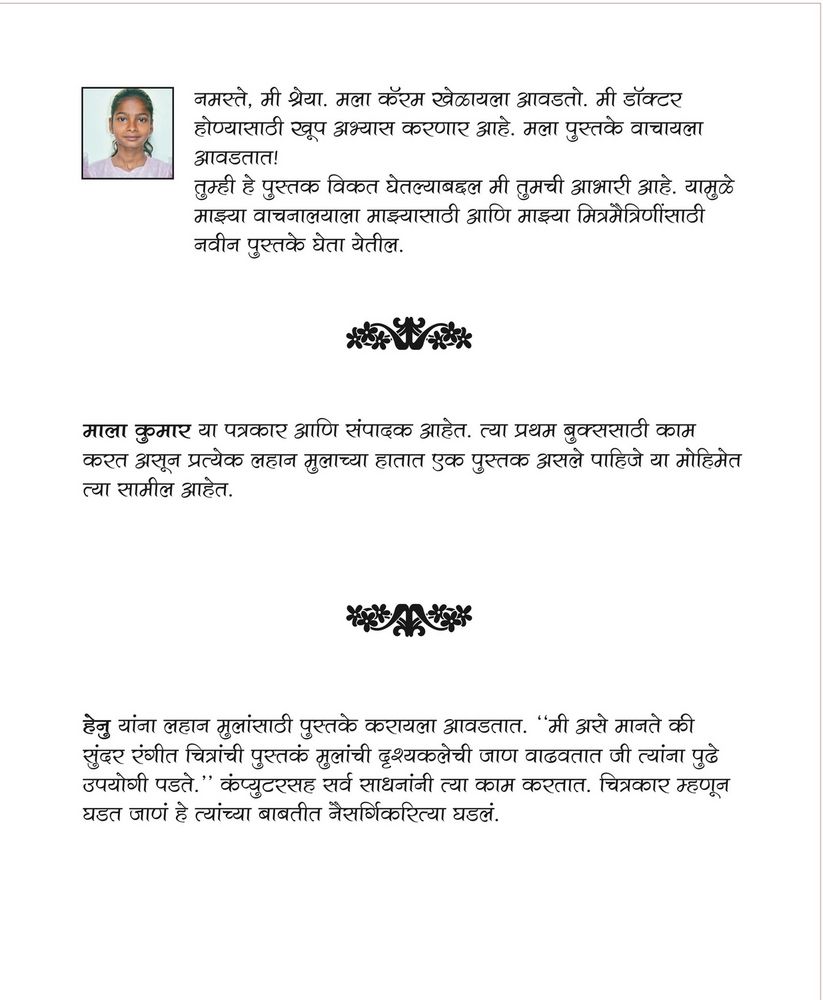 नमस्ते, मी श्रेया. मला कॅरम खेळायला आवडतो. मी डॉक्टर
होण्यासाठी खूप अभ्यास करणार आहे. मला पुस्तके वाचायला
आवडतात!
तुम्ही हे पुस्तक विकत घेतल्याबद्दल मी तुमची आभारी आहे. यामुळे
माझ्या वाचनालयाला माझ्यासाठी आणि माझ्या मित्रमैत्रिणींसाठी
नवीन पुस्तके घेता येतील.
माला कुमार या पत्रकार आणि संपादक आहेत. त्या प्रथम बुक्ससाठी काम
करत असून प्रत्येक लहान मुलाच्या हातात एक पुस्तक असले पाहिजे या मोहिमेत
त्या सामील आहेत.
हेनु यांना लहान मुलांसाठी पुस्तके करायला आवडतात. ‘‘मी असे मानते की
सुंदर रंगीत चित्रांची पुस्तकं मुलांची दृश्यकलेची जाण वाढवतात जी त्यांना पुढे
उपयोगी पडते.’’ कंप्युटरसह सर्व साधनांनी त्या काम करतात. चित्रकार म्हणून
घडत जाणं हे त्यांच्या बाबतीत नैसर्गिकरित्या घडलं.